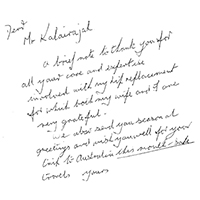 Dear
Mr Kalairajah
a brief note to thank you for
all your care and expertise
involved with my hip replacement
for which both my wife and I are
very grateful.
We also send you seasonal
greetings and wish you well for your
trip to Australia this month - safe
travels yours